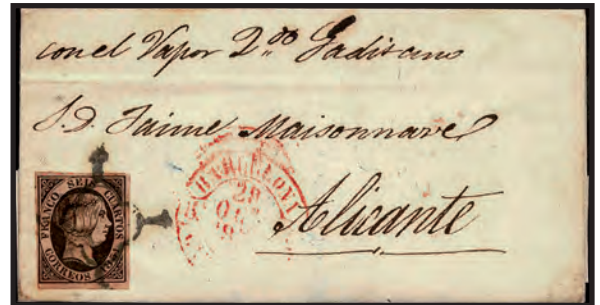 con el Vapor 2.º Gaditano
S. D. Jaime Maisonnave
BARCELONA
28
Alicante
FRANCO SEIS CUARTOS
CORREOS